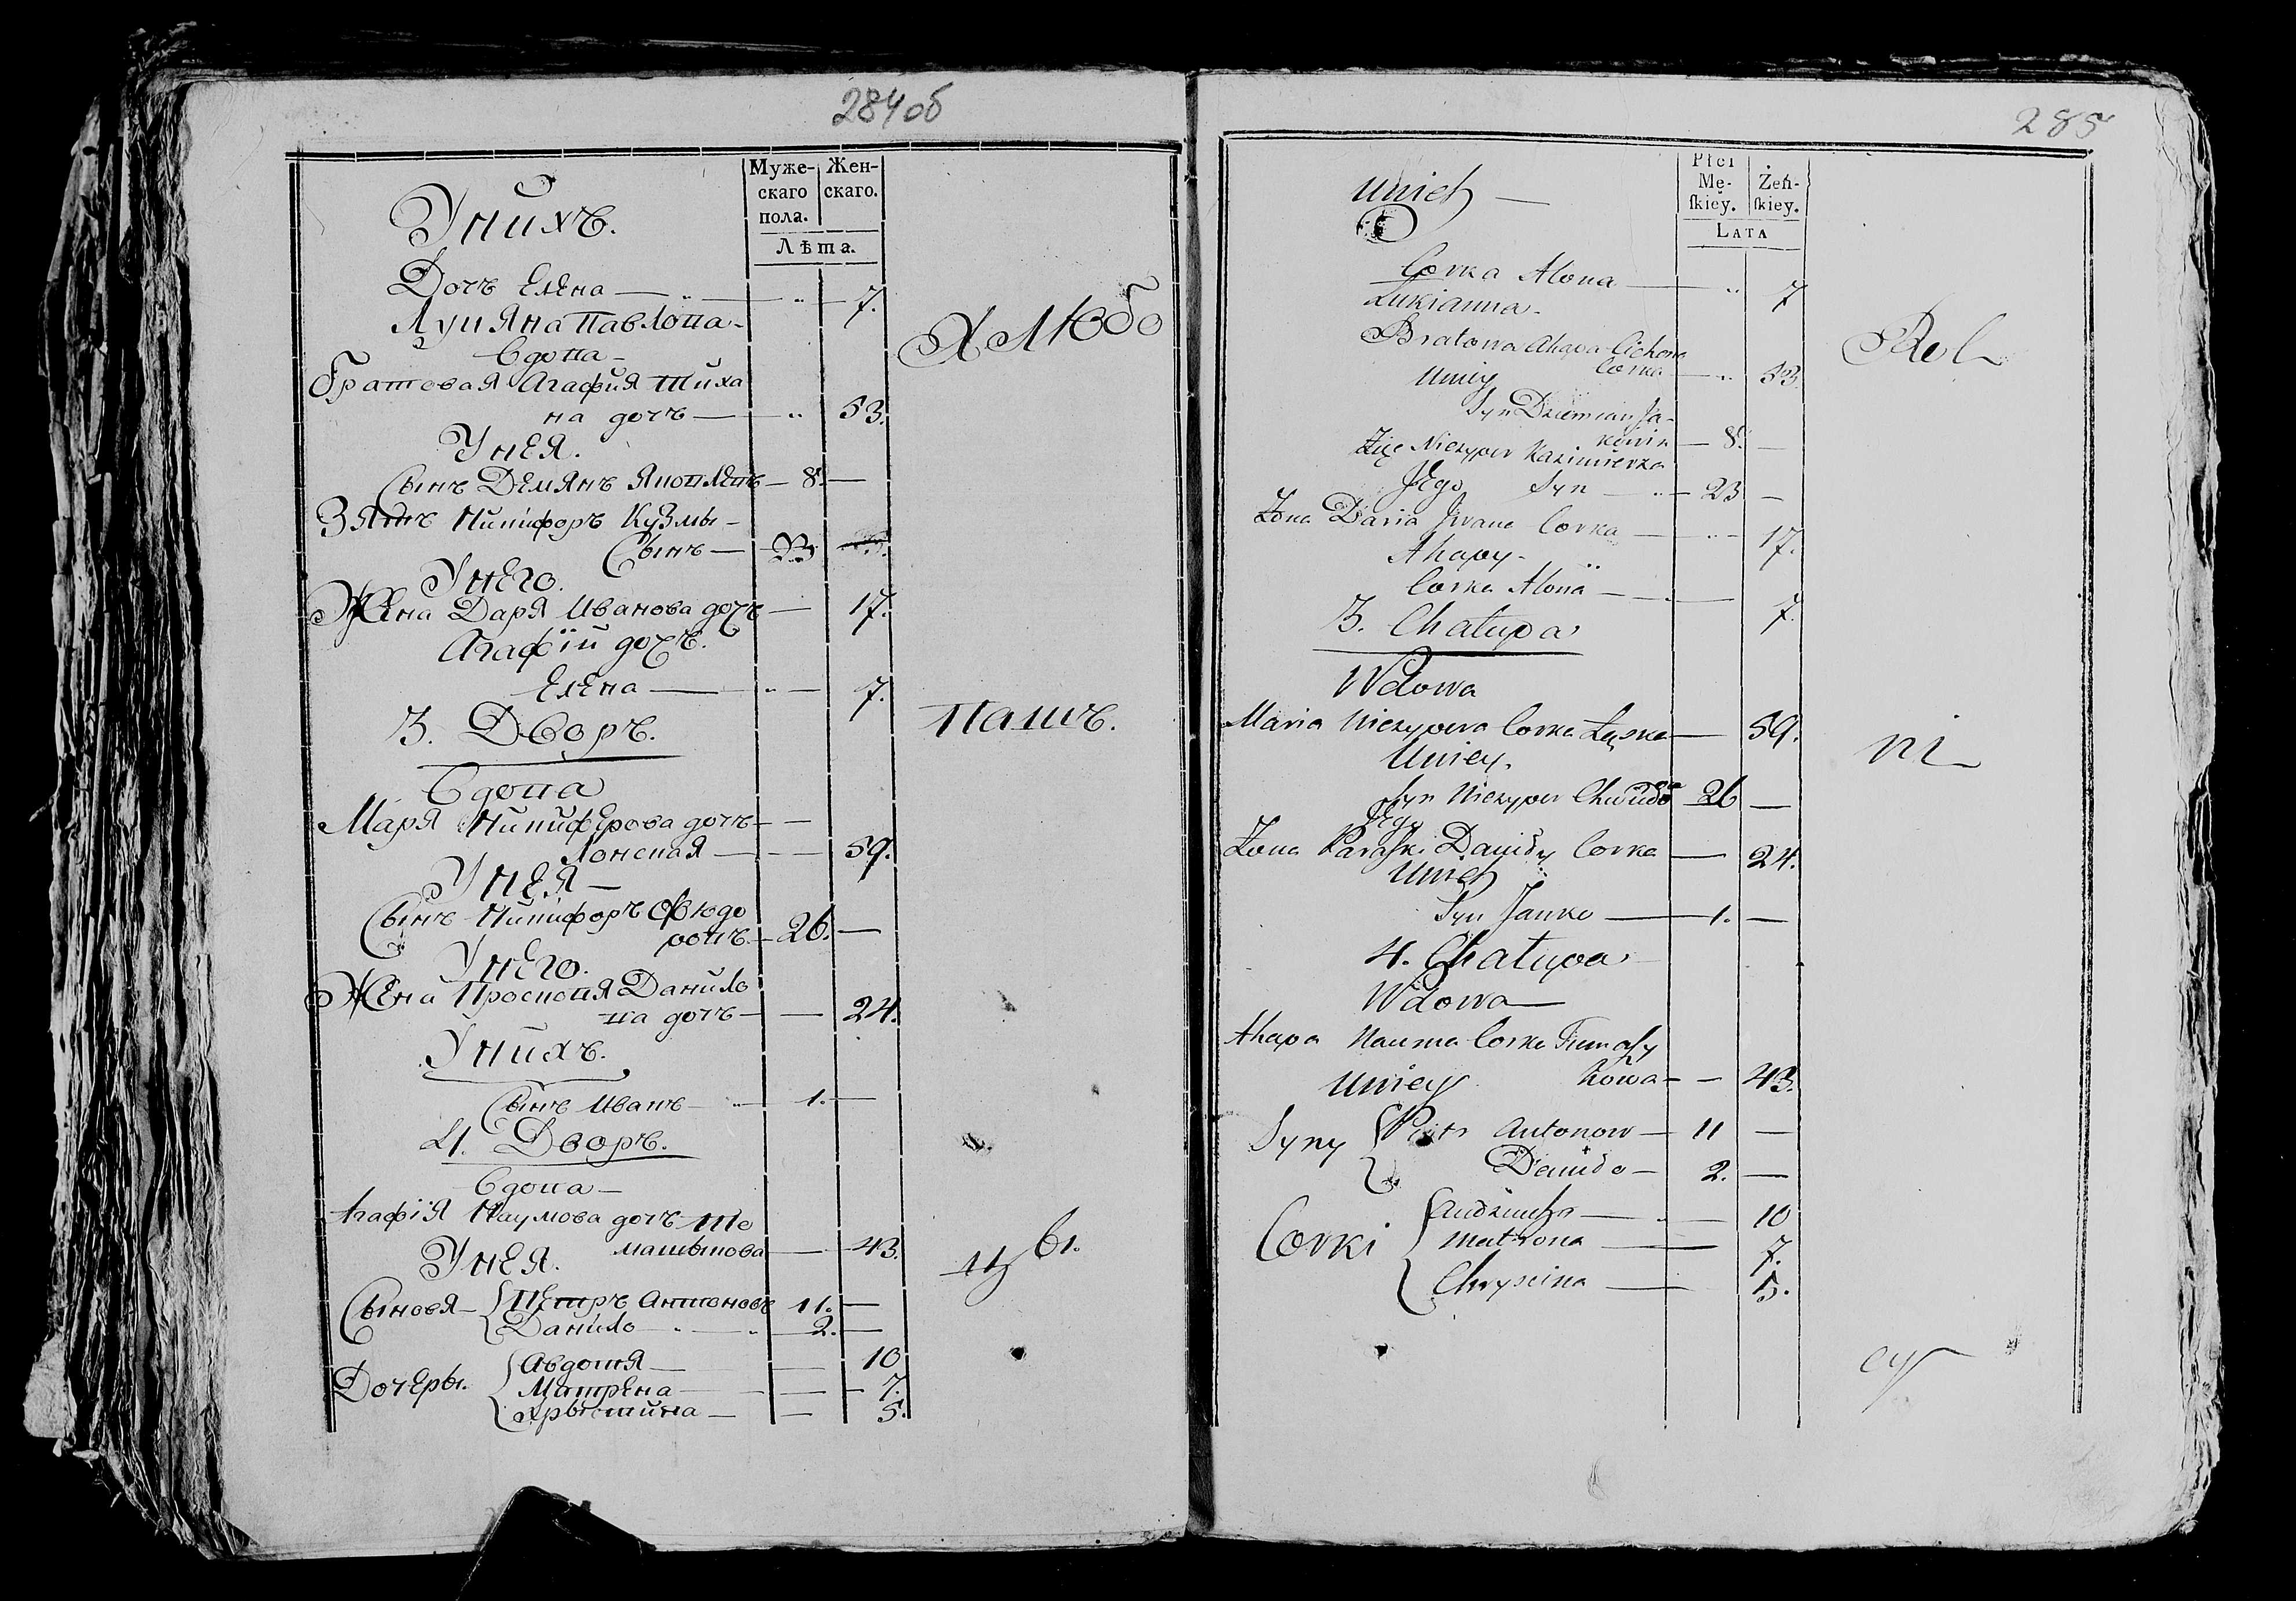 284об
Муже-
скаго
пола.
Жен-
скаго.
Лѣта.
У нихъ.
Дочъ Елена — 7.
Лукяна Павлова
Вдова
Братовая Агафия Тиха
на дочъ — 53.
У нея.
Сынъ Демянъ Яковлевъ — 8. —
Зять Никифоръ Кузмы
Сынъ — 23
У него.
Жена Даря Иванова дочъ — 17.
Агафіи дочъ.
Елена — 7.
3. Дворъ.
Вдова
Маря Никиферова дочъ —
Лонская — 59.
У нея —
Сынъ Никифоръ Фюдо
ровъ — 26. —
У него.
Жена Проскопя Данило
ва дочъ — 24.
У нихъ.
Сынъ Иванъ — 1. —
4. Дворъ.
Вдова —
Агафія Наумова дочъ Ти
машкова — 43.
У нея.
Сыновя — Петръ Антоновъ 11. —
Данило — 2. —
Дочеры. Авдотя — 10
Матрена — 7.
Хрыстина — 5.
Хлѣбо
пашъ.
цы.
285
Płci
Mę-
ſkiey.
Żeń-
ſkiey.
Lata
Unich —
Corka Alona — 7
Lukianna
Bratowa Ahapa Cichona
Corka — 53.
Uniey
Syn Dziemian Ja-
kowin — 8. —
Zięć Niczypor Kazimierza
Syn — 23 —
Jego
Żona Daria Iwana Corka — 17.
Ahapy
Corka Alona — 7.
3. Chatupa
Wdowa
Maria Niczypora Corka Łąska — 59.
Uniey.
Syn Niczypor Chwiedo — 26 —
Jego
Żona Paraſki Daniły Corka — 24.
Unich
Syn Janko — 1. —
4. Chatupa
Wdowa —
Ahapa Nauma Corka Timaſz
kowa — 43.
Uniey
Syny Piotr Antonow — 11 —
Daniło — 2. —
Corki Audziucha — 10
Matrona — 7.
Chryscina — 5.
Rol
ni
cy